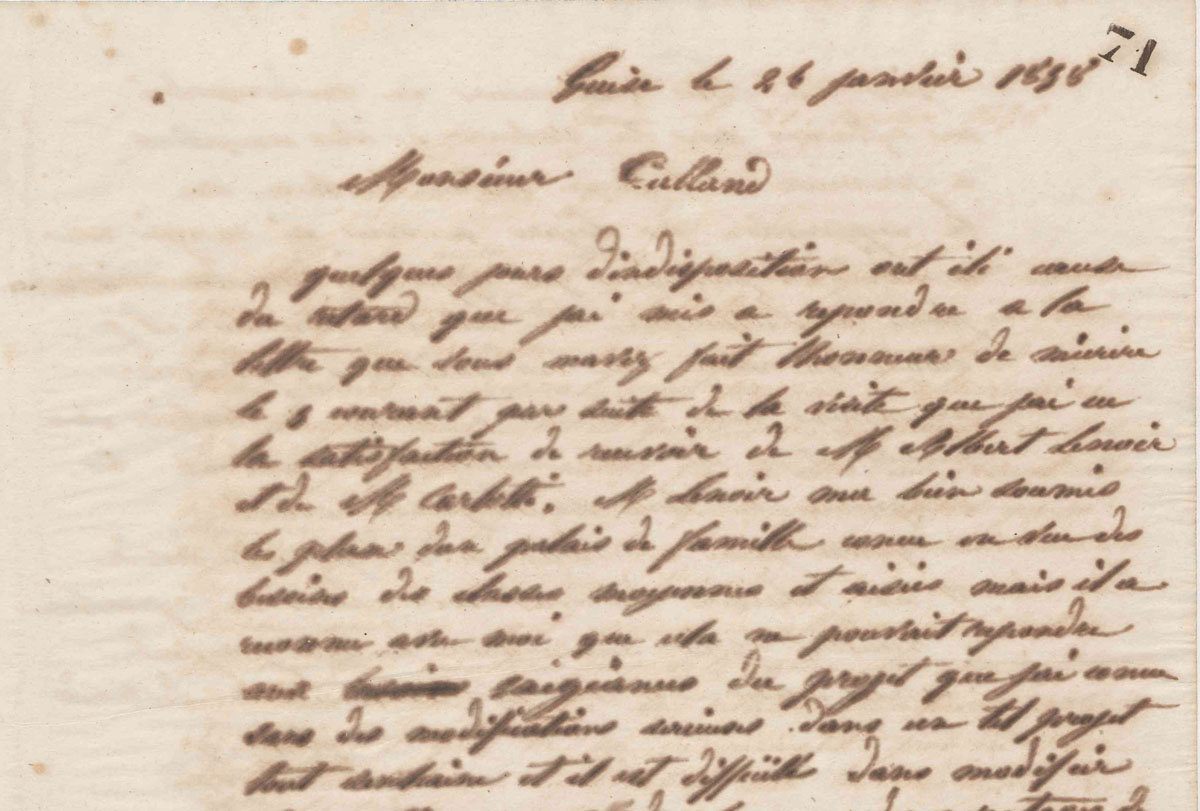 71
Guise le 26 janvier 1858
Monsieur Calland
quelques jours d'indisposition ont été cause
du retard que jai mis a repondre a la
lettre que vous mavez fait lhonneur de mécrire
le courant par suite de la visite que jai eu
la satisfaction de recevoir de M Albert Lenoir
et de M Carlotti. M Lenoir ma bien soumis
le plan dun palais de famille concu en vue des
besoins des classes moyennes et aisées mais il a
reconnu avec moi que cela ne pouvait repondre
aux exigeances du projet que jai concu
sans des modifications serieuses. dans un tel projet
tout et il est difficille dans modifier